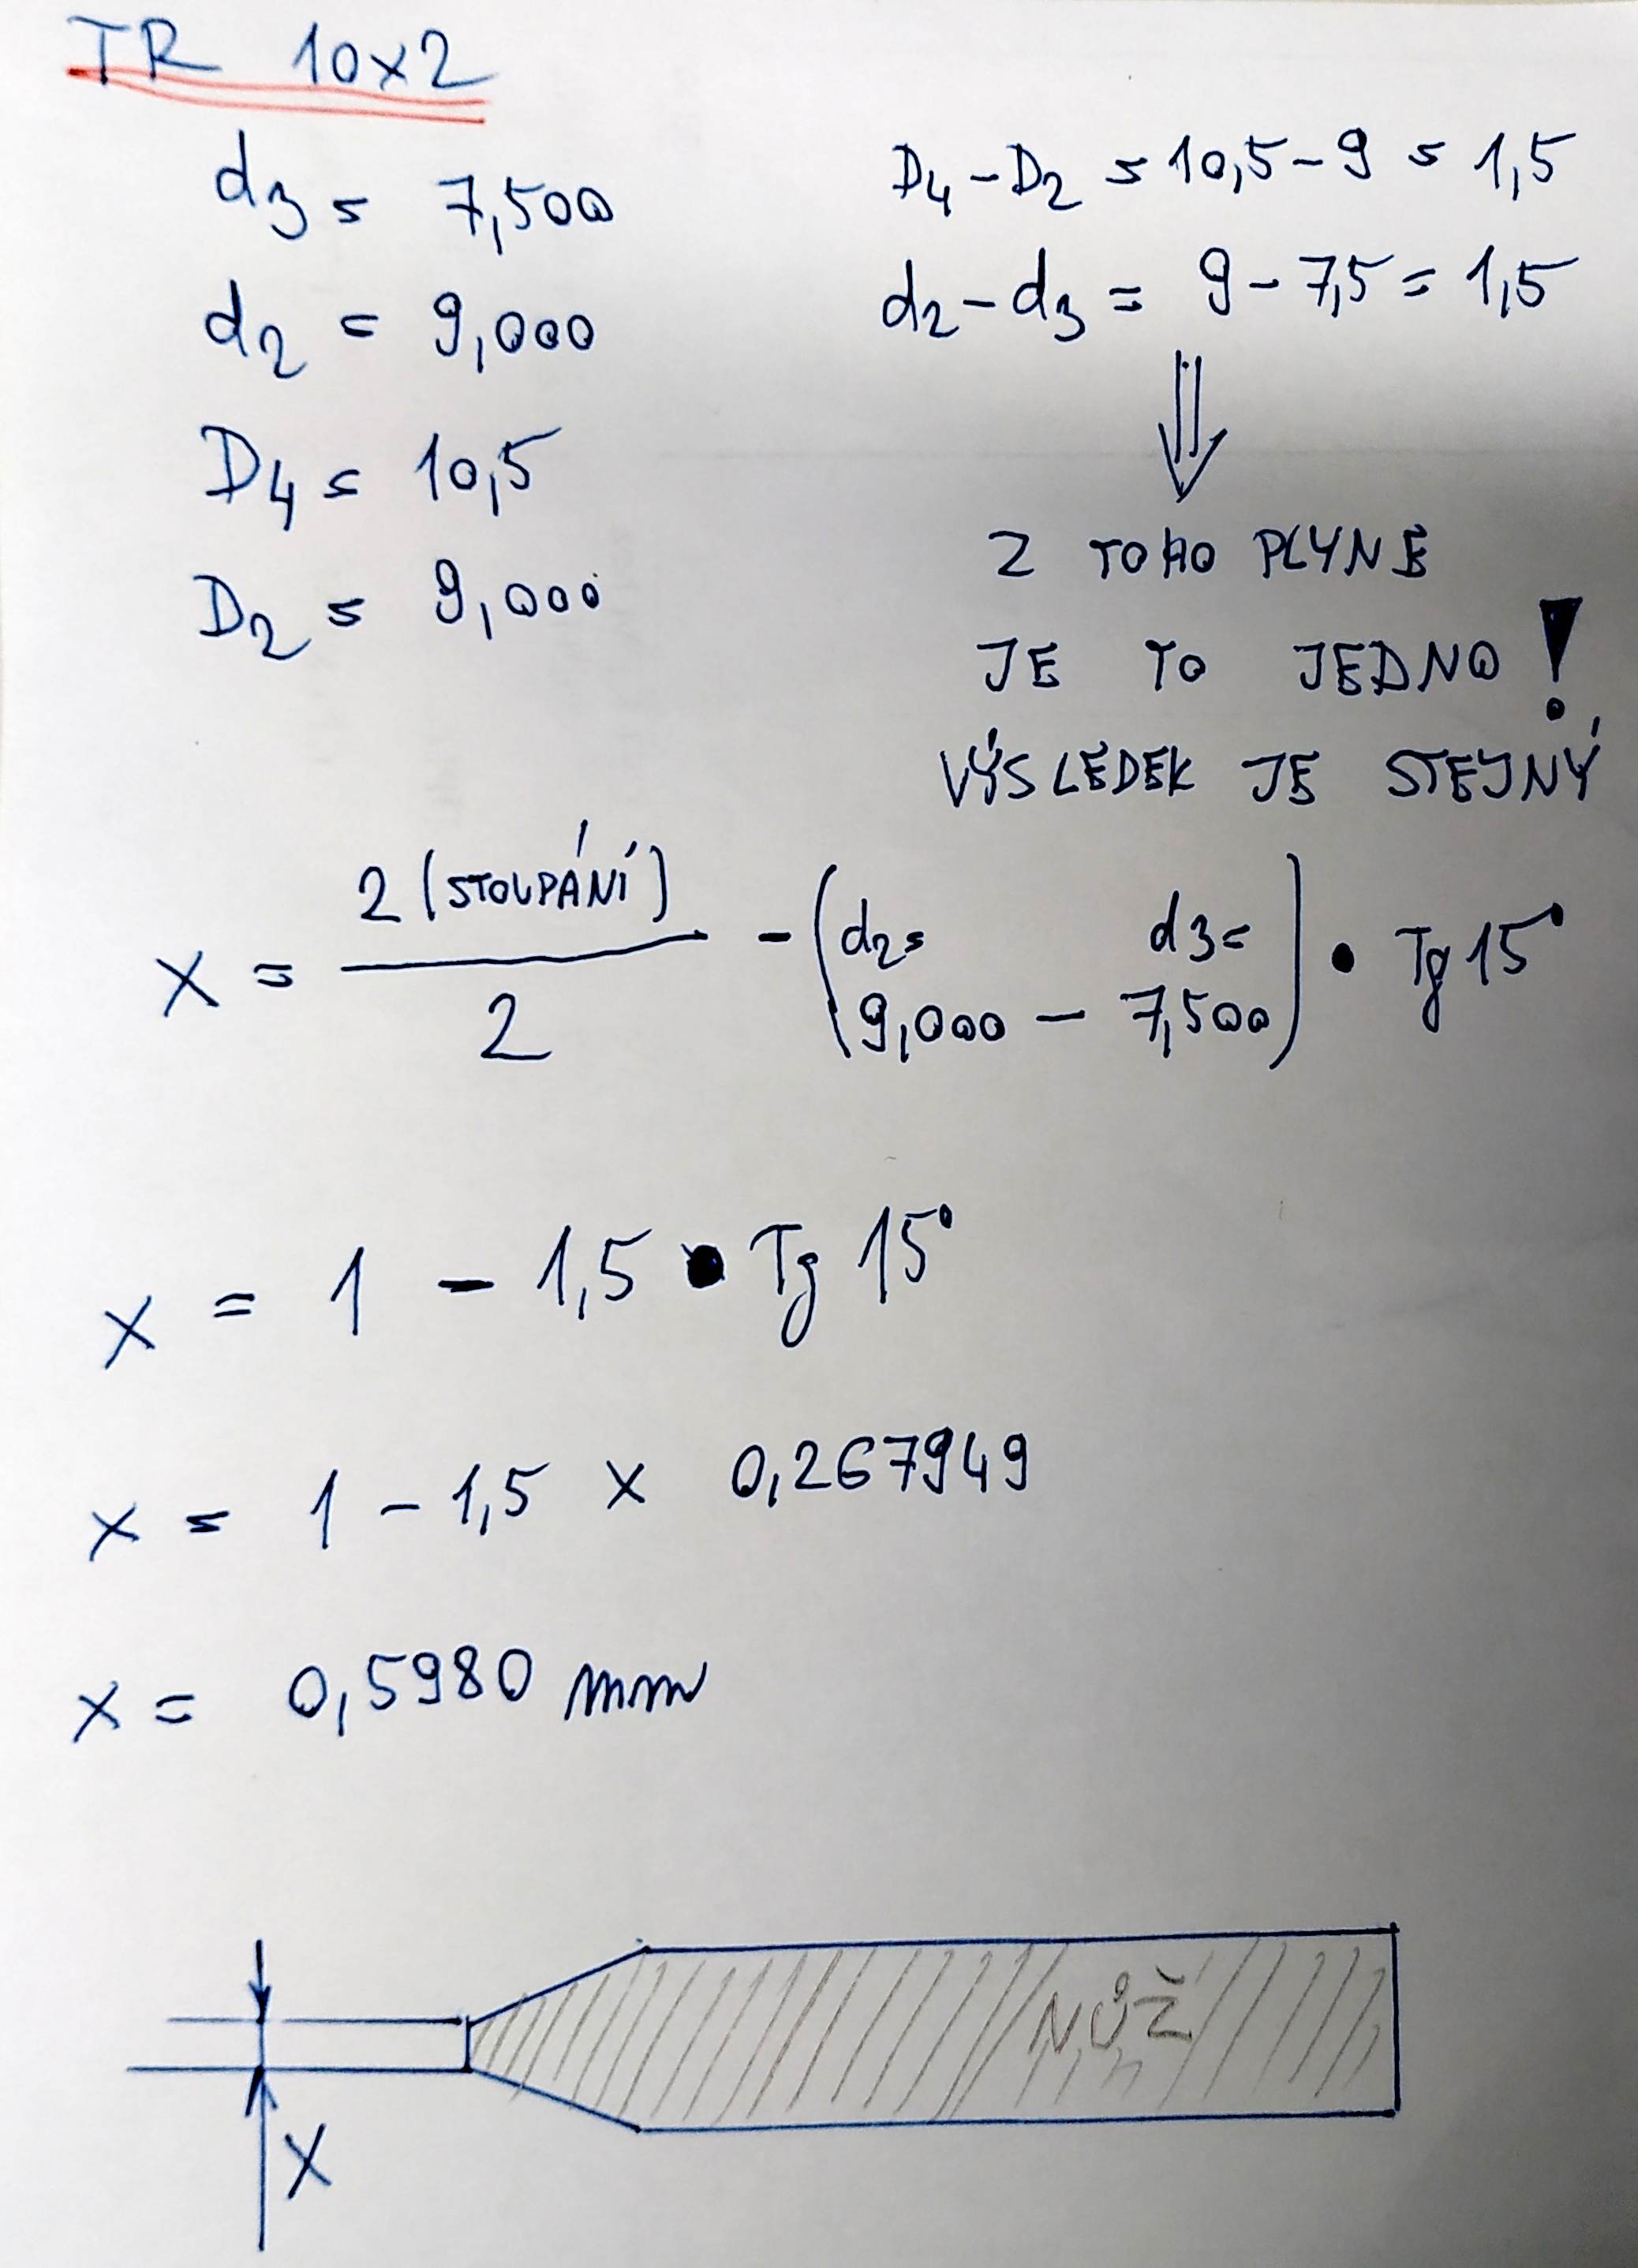 TR 10x2
d3 = 7,500
d2 = 9,000
D4 = 10,5
D2 = 9,000
D4 - D2 = 10,5 - 9 = 1,5
d2 - d3 = 9 - 7,5 = 1,5
⇓
Z TOHO PLYNE
JE TO JEDNO!
VÝSLEDEK JE STEJNÝ
x = 2 (STOUPÁNÍ) / 2 - (d2= 9,000 - d3= 7,500) • Tg 15°
x = 1 - 1,5 • Tg 15°
x = 1 - 1,5 x 0,267949
x = 0,5980 mm
NŮŽ
X